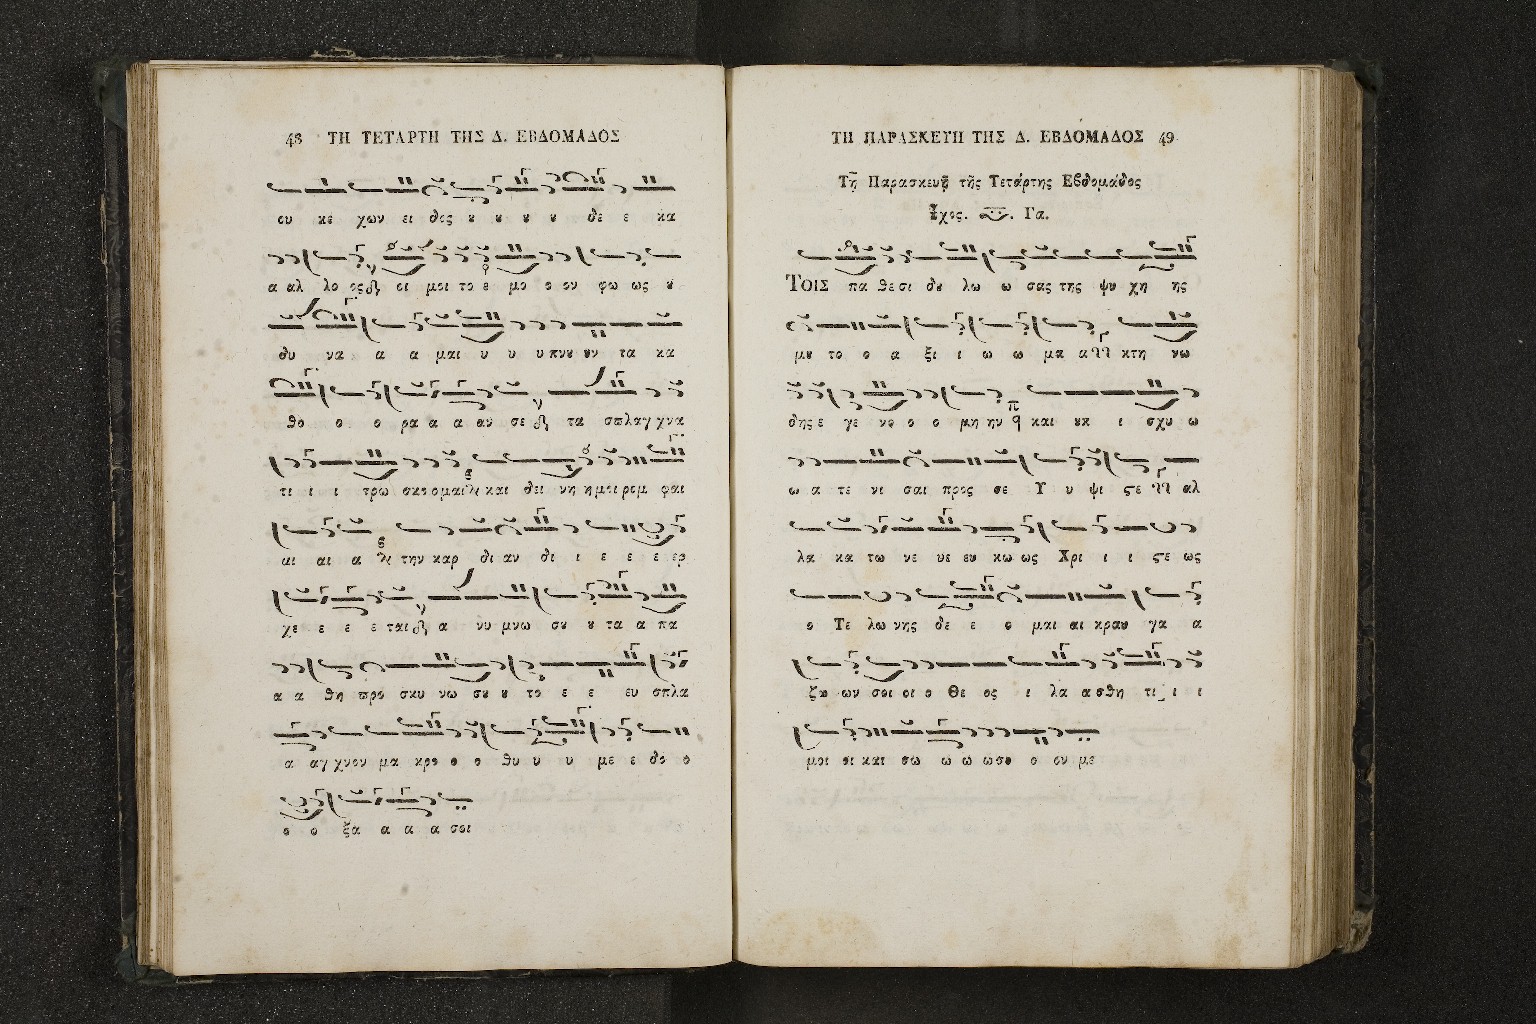 48 ΤΗ ΤΕΤΑΡΤΗ ΤΗΣ Δ. ΕΒΔΟΜΑΔΟΣ
ου κε χων ει δος ȣ ȣ ȣ ȣ δε ε κα
α αλ λο ος οι μοι το ε μο ο ον φω ως ȣ
δυ να α α μαι υ υ υπνȣ ȣν τα κα
θο ο ο ρα α α αν σε τα σπλαγ χνα
τι ι ι τρω σκο ομαι και δει νη η μοι ρομ φαι
αι αι α την καρ δι αν δι ι ε ε ε ερ
χε ε ε ε ται α νυ μνω σȣ ȣ τα α πα
α α θη προ σκυ νω σȣ ȣ το ε ε ευ σπλα
α αγ χνον μα κρο ο ο θυ υ υ με ε δο ο
ο ο ξα α α α σοι
ΤΗ ΠΑΡΑΣΚΕΥΗ ΤΗΣ Δ. ΕΒΔΟΜΑΔΟΣ 49
Τῇ Παρασκευῇ τῆς Τετάρτης Εβδομάδος
Ἦχος. Γα.
ΤΟΙΣ πα θε σι δȣ λω ω σας της ψυ χη ης
μȣ το ο α ξι ι ω ω μα α κτη νω
δης ε γε νο ο ο μη ην και ȣκ ι σχυ ω
ω α τε νι σαι προς σε Υ υ ψι ϛε αλ
λα κα τω νε νε ευ κω ως Χρι ι ι ϛε ως
ο Τε λω νης δε ε ο μαι αι κραυ γα α
ζω ων σοι οι ο Θε ος ι λα ασθη τι ι ι
μοι οι και σω ω ω ωσο ο ον με